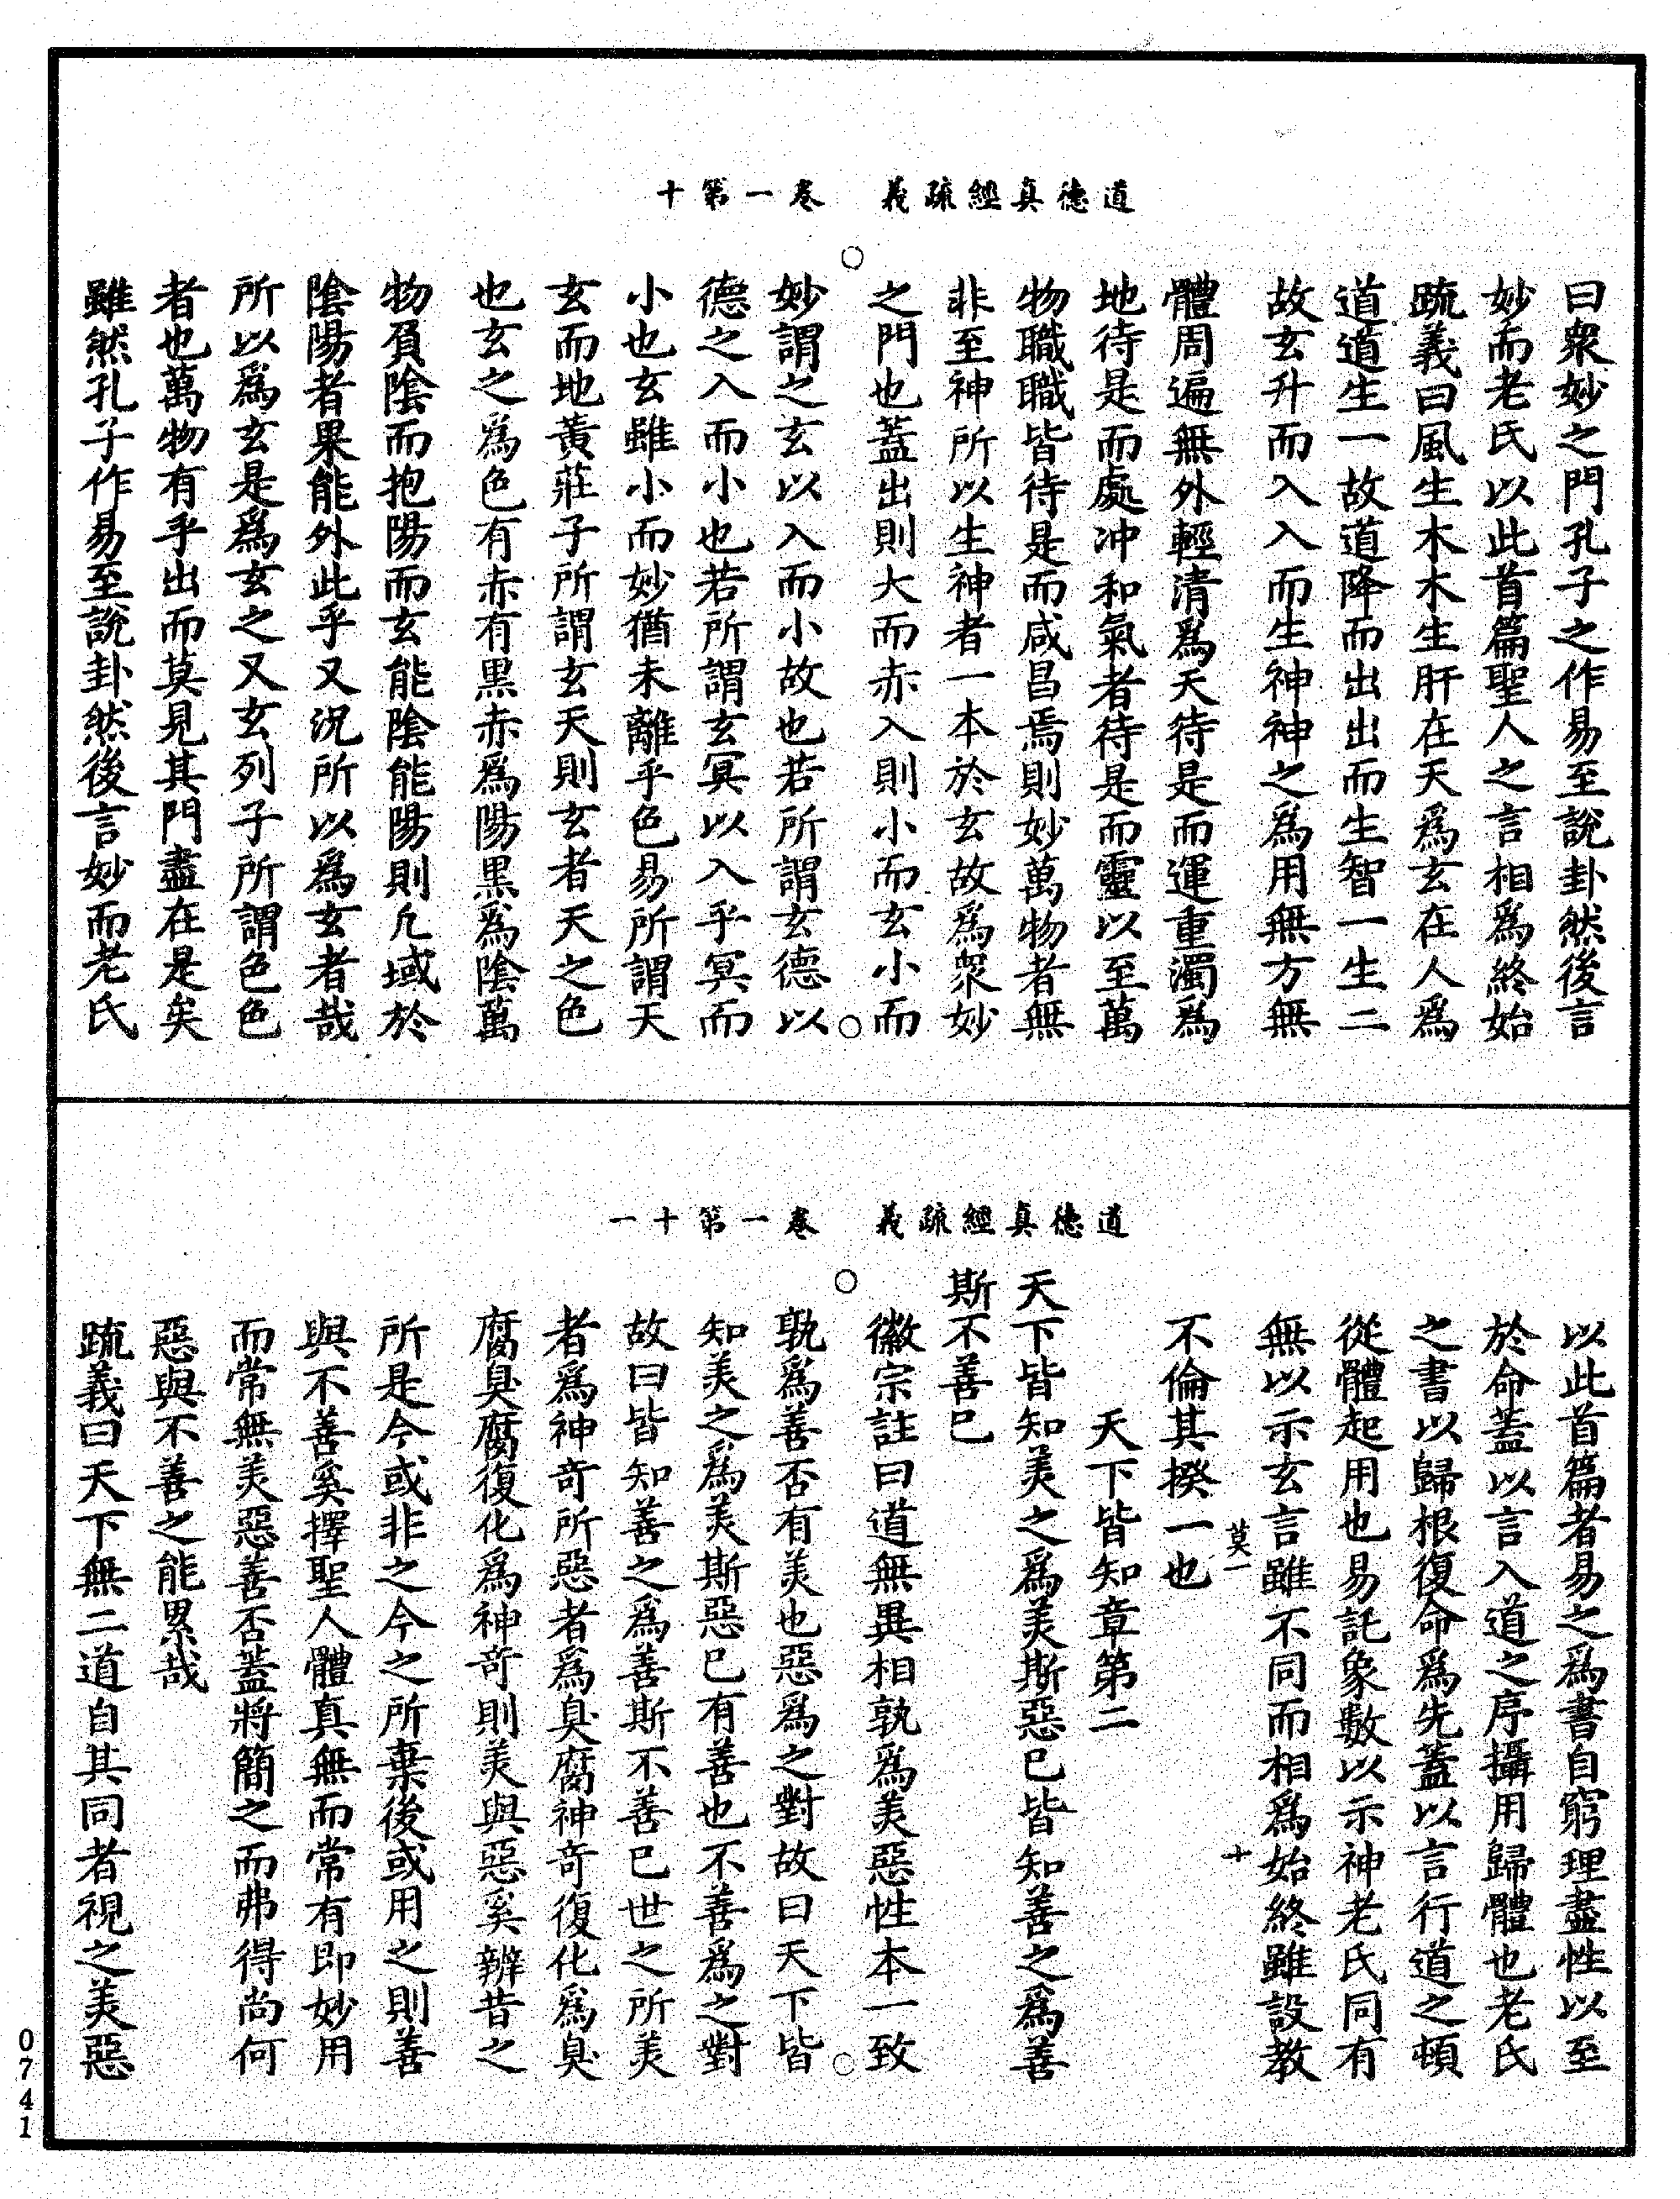 道德真經疏義　卷一第十
曰衆妙之門孔子之作易至說卦然後言
妙而老氏以此首篇聖人之言相爲終始
疏義曰風生木木生肝在天爲玄在人爲
道道生一故道降而出出而生智一生二
故玄升而入入而生神神之爲用無方無
體周遍無外輕清爲天待是而運重濁爲
地待是而處冲和氣者待是而靈以至萬
物職職皆待是而咸昌焉則妙萬物者無
非至神所以生神者一本於玄故爲衆妙
之門也蓋出則大而赤入則小而玄小而
妙謂之玄以入而小故也若所謂玄德以
德之入而小也若所謂玄冥以入乎冥而
小也玄雖小而妙猶未離乎色易所謂天
玄而地黃莊子所謂玄天則玄者天之色
也玄之爲色有赤有黑赤爲陽黑爲陰萬
物負陰而抱陽而玄能陰能陽則凡域於
陰陽者果能外此乎又況所以爲玄者哉
所以爲玄是爲玄之又玄列子所謂色色
者也萬物有乎出而莫見其門盡在是矣
雖然孔子作易至說卦然後言妙而老氏
道德真經疏義　卷一第十一
以此首篇者易之爲書自窮理盡性以至
於命蓋以言入道之序攝用歸體也老氏
之書以歸根復命爲先蓋以言行道之頓
從體起用也易託象數以示神老氏同有
無以示玄言雖不同而相爲始終雖設教
莫一　十
不倫其揆一也
天下皆知章第二
天下皆知美之爲美斯惡已皆知善之爲善
斯不善已
徽宗註曰道無異相孰爲美惡性本一致
孰爲善否有美也惡爲之對故曰天下皆
知美之爲美斯惡已有善也不善爲之對
故曰皆知善之爲善斯不善已世之所美
者爲神奇所惡者爲臭腐神奇復化爲臭
腐臭腐復化爲神奇則美與惡奚辨昔之
所是今或非之今之所棄後或用之則善
與不善奚擇聖人體真無而常有即妙用
而常無美惡善否蓋將簡之而弗得尚何
惡與不善之能累哉
疏義曰天下無二道自其同者視之美惡
0741